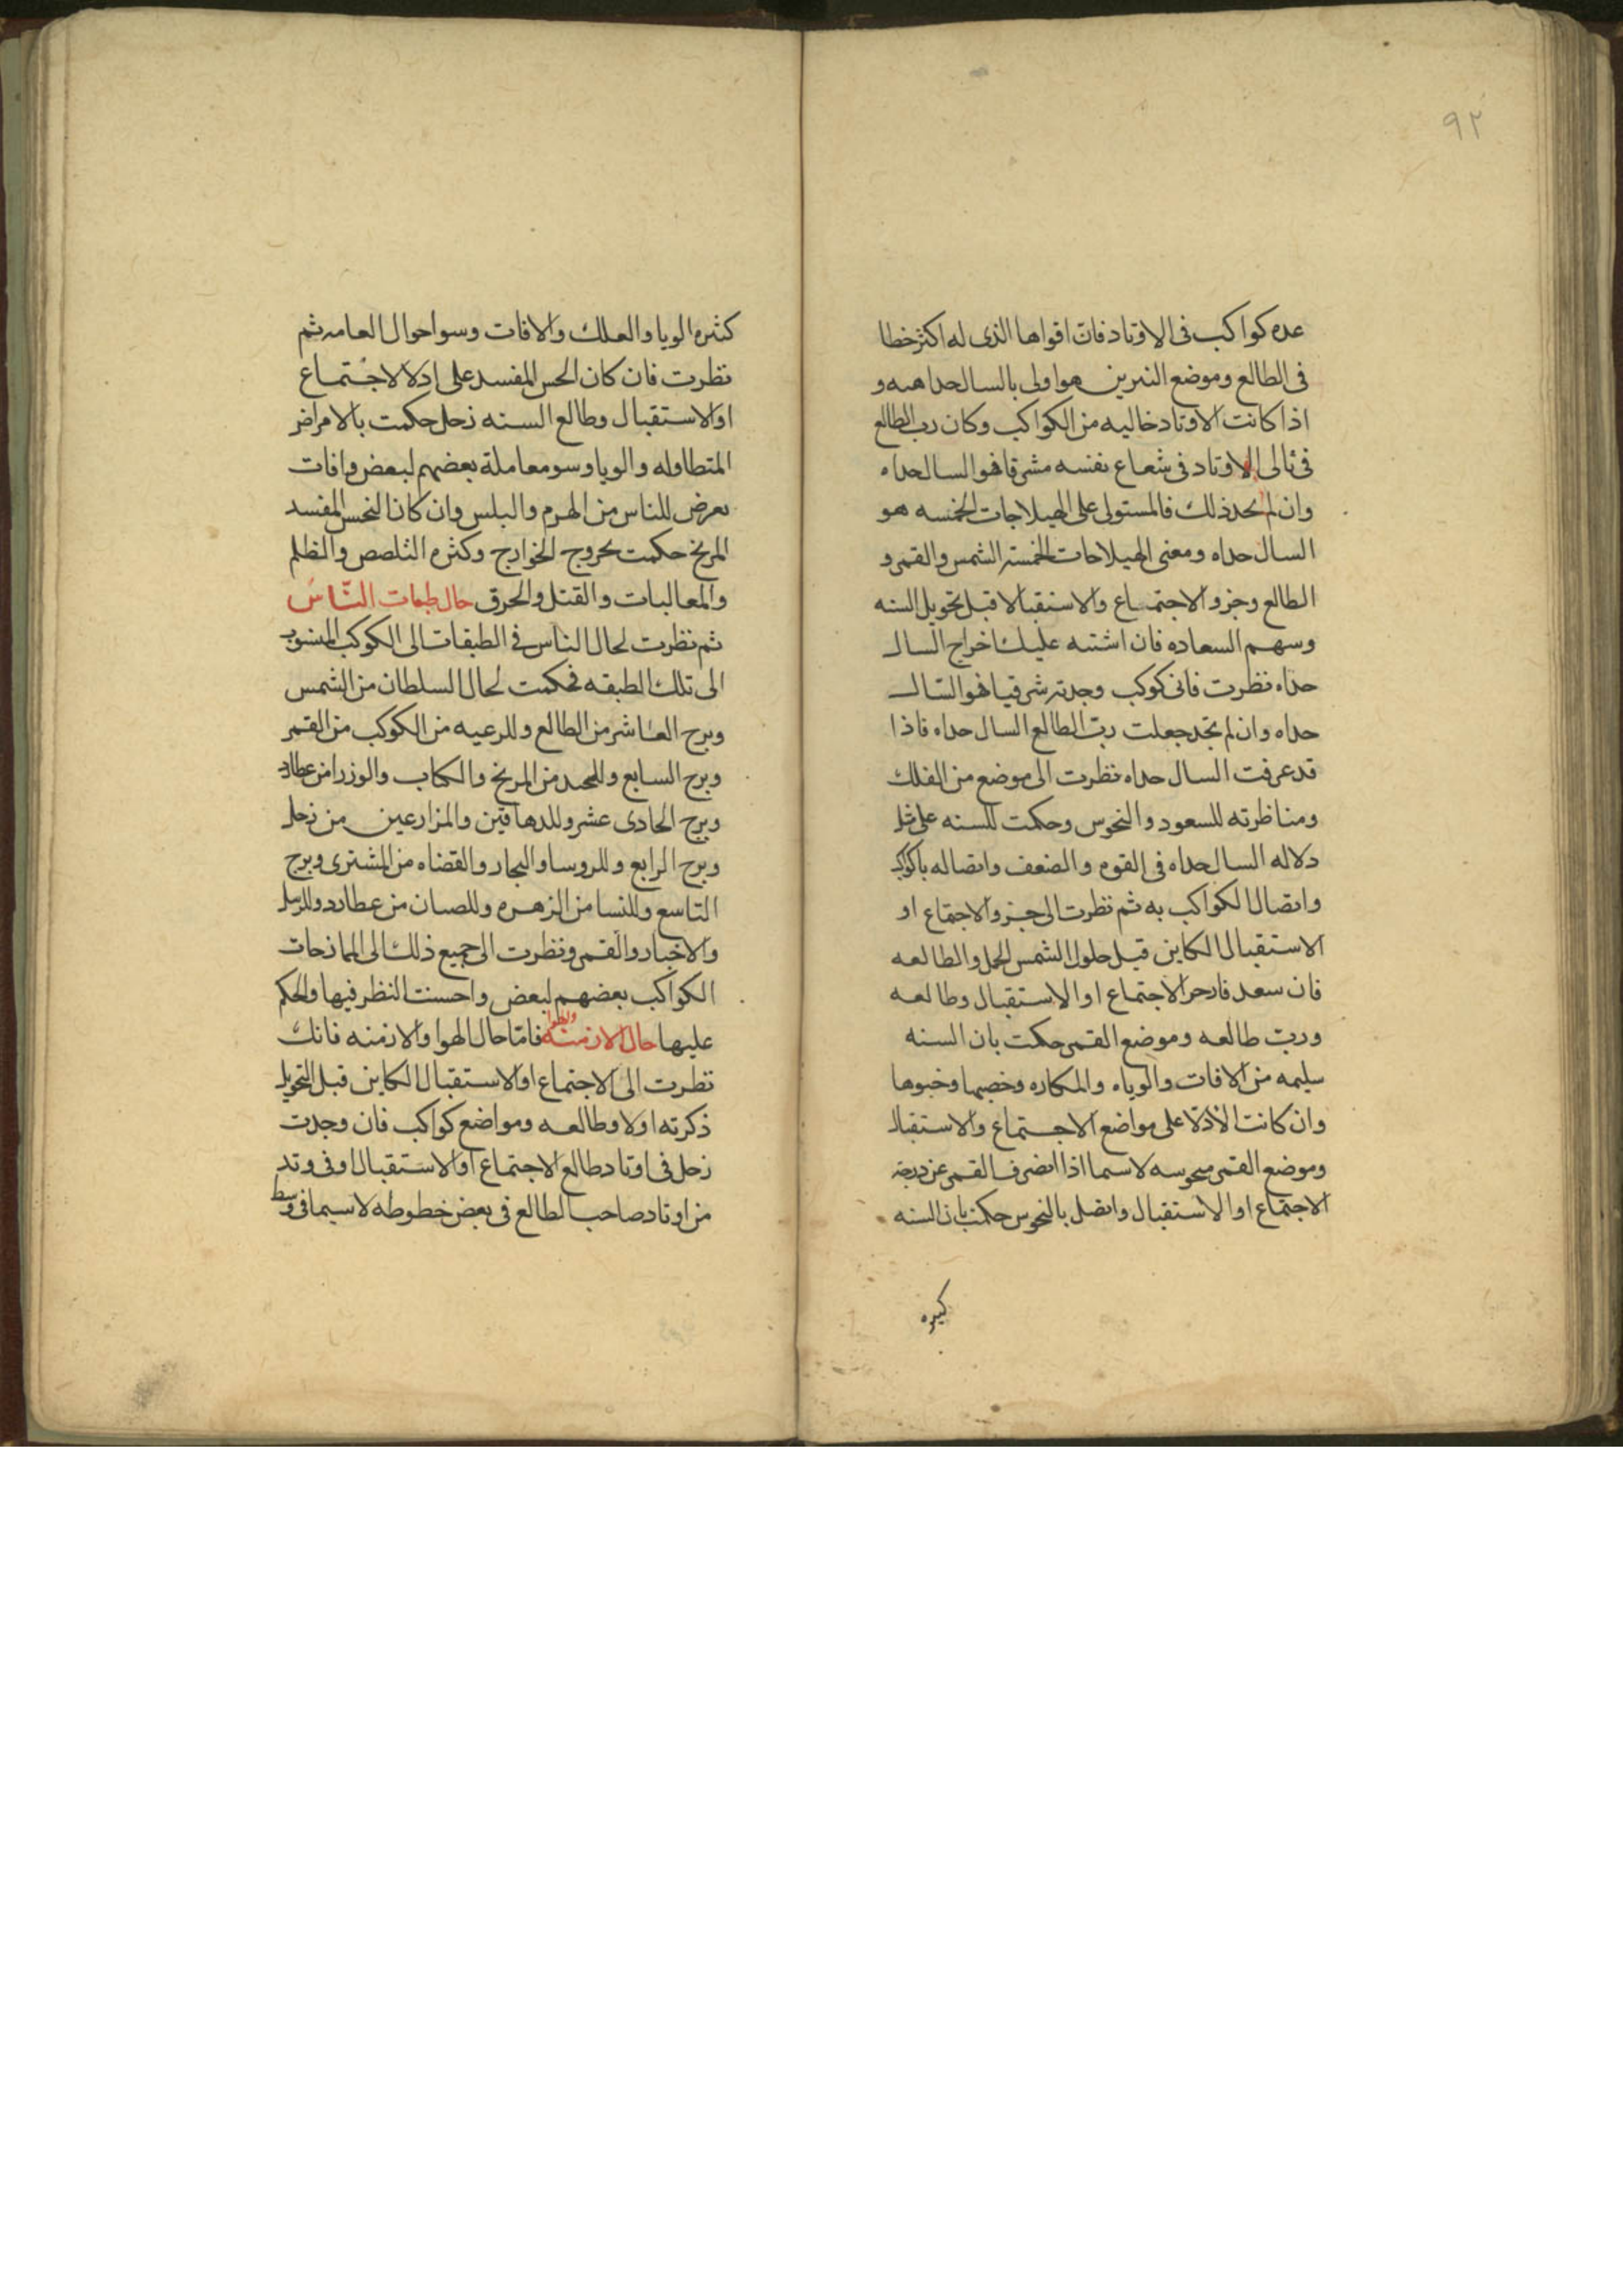 ٩٢
عده كواكب فى الاوتاد فان اقواها الذى له اكثر خطا
فى الطالع وموضع النيرين هو اولى بالسالحداهىه و
اذا كانت الاوتاد خاليه من الكواكب وكان رب الطالع
فى تالى الاوتاد فى شعاع نفسه مشرقا فهو السالحداه
وان لم تجد ذلك فالمستولى على الهيلاجات الخمسه هو
السالحداه ومعنى الهيلاجات الخمسة الشمس والقمر و
الطالع وجزو الاجتماع والاستقبالا قبل تحويل السنه
وسهم السعاده فان اشتبه عليك اخراج السال
حداه نظرت فانى كوكب وجدته شرقيا فهو السال
حداه وان لم تجد جعلت رب الطالع السال حداه فاذا
قد عرفت السال حداه نظرت الى موضع من الفلك
ومناظرته للسعود والنحوس وحكمت للسنه على مثل
دلاله السال حداه فى القوه والضعف واتصاله بالكواكب
واتصال الكواكب به ثم نظرت الى جزو الاجتماع او
الاستقبال الكاين قبل حلول الشمس الحمل والطالعه
فان سعد الاجتماع او الاستقبال وطالعه
ورب طالعه وموضع القمر حكمت بان السنه
سليمه من الافات والوباء والمكاره وخصبها وخبوها
وان كانت الادلا على مواضع الاجتماع والاستقبال
وموضع القمر منحوسه لاسيما اذا انصرف القمر عن درجة
الاجتماع او الاستقبال واتصل بالنحوس حكمت بان السنه
كثيره
كثيره الوبا والعلل والافات وسو احوال العامه ثم
نظرت فان كان النحس المفسد على ادلا الاجتماع
او الاستقبال وطالع السنه زحل حكمت بالامراض
المتطاوله والوبا وسو معاملة بعضهم لبعض وافات
تعرض للناس من الهرم والبلس وان كان النحس المفسد
المريخ حكمت بخروج الخوارج وكثره التلصص والظلم
والمغالبات والقتل والحرق حال طبقات النّاس
ثم نظرت لحال الناس فى الطبقات الى الكوكب المنسوب
الى تلك الطبقه فحكمت لحال السلطان من الشمس
وبرج العاشر من الطالع وللرعيه من الكوكب من القمر
وبرج السابع وللجند من المريخ والكتاب والوزرا من عطارد
وبرج الحادى عشر وللدهاقين والمزارعين من زحل
وبرج الرابع وللروسا والتجار والقضاه من المشترى وبرج
التاسع وللنسا من الزهره وللصبيان من عطارد وللرسل
والاخبار والقمر ونظرت الى جميع ذلك الى الممازجات
الكواكب بعضهم لبعض واحسنت النظر فيها والحكم
عليها حال الازمنه والهوا فامّا حال الهوا والازمنه فانك
نظرت الى الاجتماع او الاستقبال الكاين قبل التحويل
ذكرته اولا وطالعه ومواضع كواكب فان وجدت
زحل فى اوتاد طالع الاجتماع او الاستقبال او فى وتد
من اوتاد صاحب الطالع فى بعض خطوطه لاسيما فى وسط